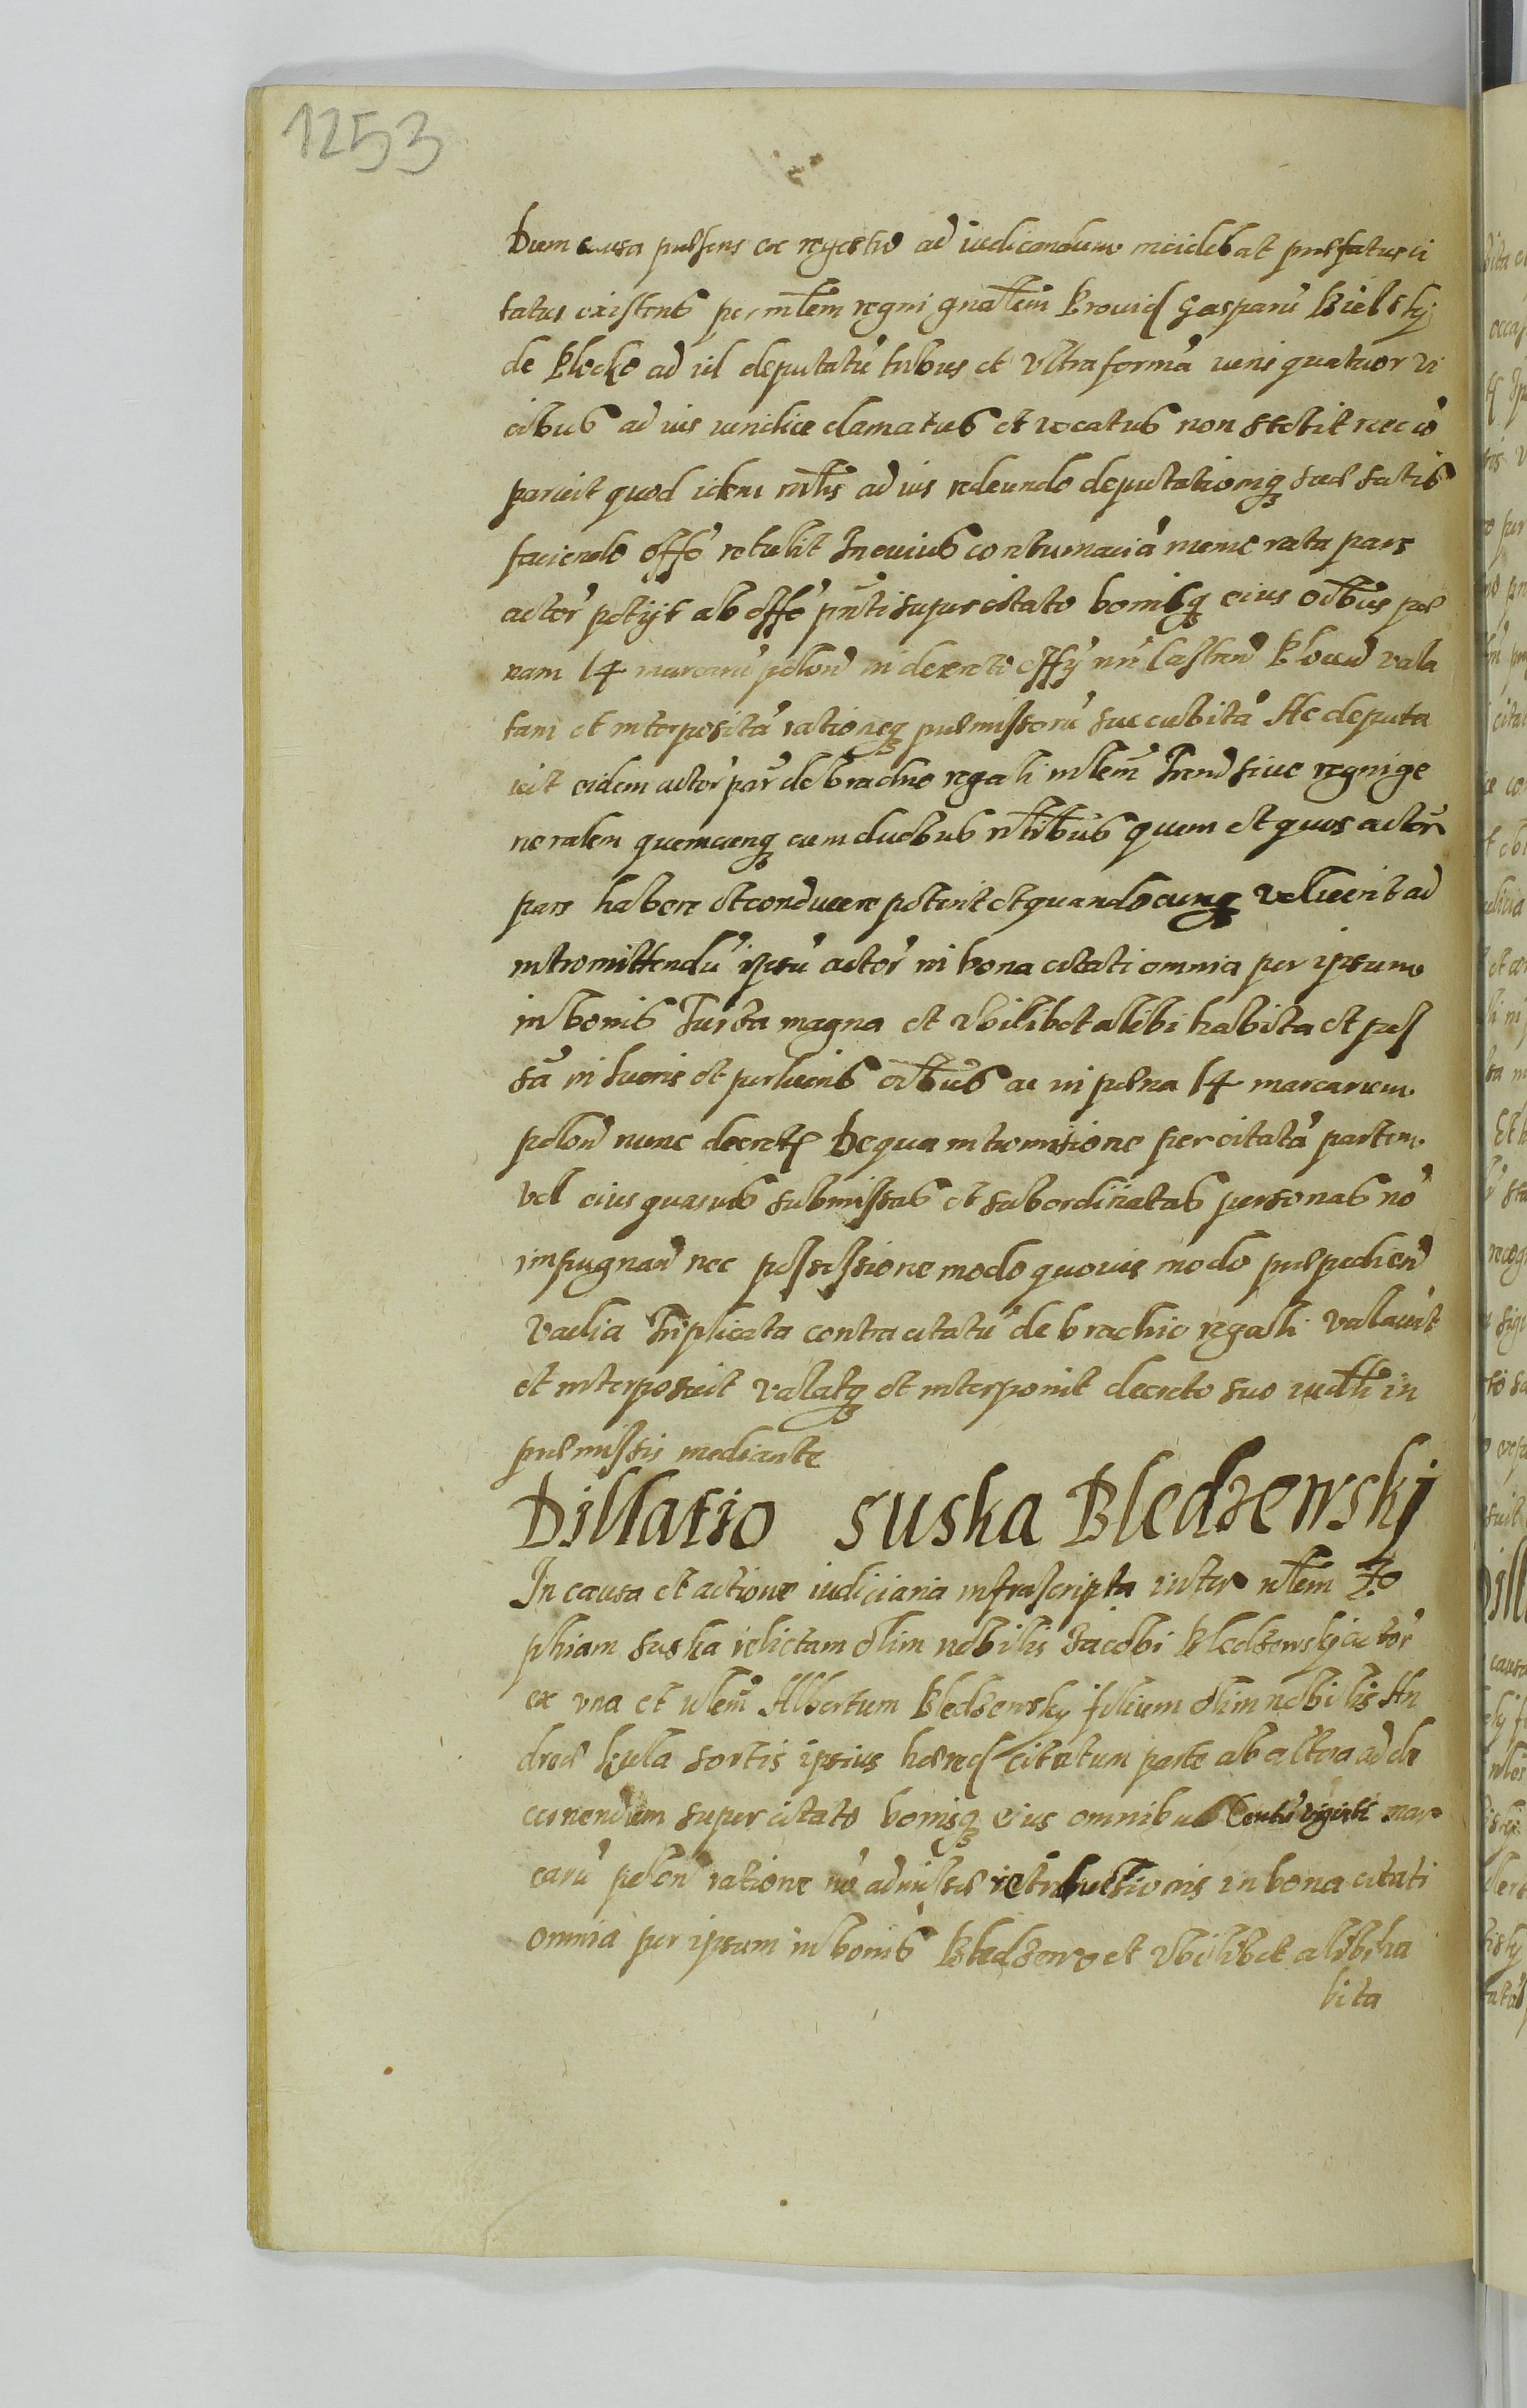 1253
Dum causa praesens ex regestro ad iudicandum incidebat praefatus ci
tatus existens per mlem regni gnalem Provid Gasparu Bielsky
de Plocko ad id deputatu tribus et Ultra forma iuris quatuor vi
cibus ad ius iuridice clamatus et vocatus non stetit nec co
paruit quod idem mlis ad ius redeundo deputationiq suae satis
faciendo offo retulit In cuius contumacia memorata pars
actor petijt ab offo pnti super citato bonisq eius oibus pae
nam 14 marcaru polon in decreto offij nri Castren Plocen vala
tam et interposita rationeq praemissoru succubita Ac deputa
vit eidem actor par de brachio regali mlem Terrē sive regni ge
neralem quemcunq cum duobus nlibus quem et quos actor
pars habere et conducere poterit et quandocunq voluerit ad
intromittendu ipsu actor in bona citati omnia per ipsum
in bonis Turza magna et Ubilibet alibi habita et pos
sa in lucris et perlucris oibus ac in paena 14 marcarum
polon nunc decret De qua intromisione per citata partem
vel eius quasuis submissas et subordinatas personas no
impugnan nec possessione modo quouis modo praepedien
Vadia Triplicata contra citatu de brachio regali valavit
et interposuit valatq et interponit decreto suo iudli in
praemissis mediante
Dillatio suska Bledzewski
In causa et actione iudiciaria infrascripta inter nlem Zo
phiam suska relictam olim nobilis Jacobi Bledzewski actor
ex una et nlem Albertum Bledzewsky filium olim nobilis An
dreae Kula sortis ipsius haered citatum parte ab altera ad de
cernendum super citato bonisq eius omnibus Centu viginti mar
caru polon ratione no admissae intromissionis in bona citati
omnia per ipsum in bonis Bledzewo et Ubilibet alibi ha
bita